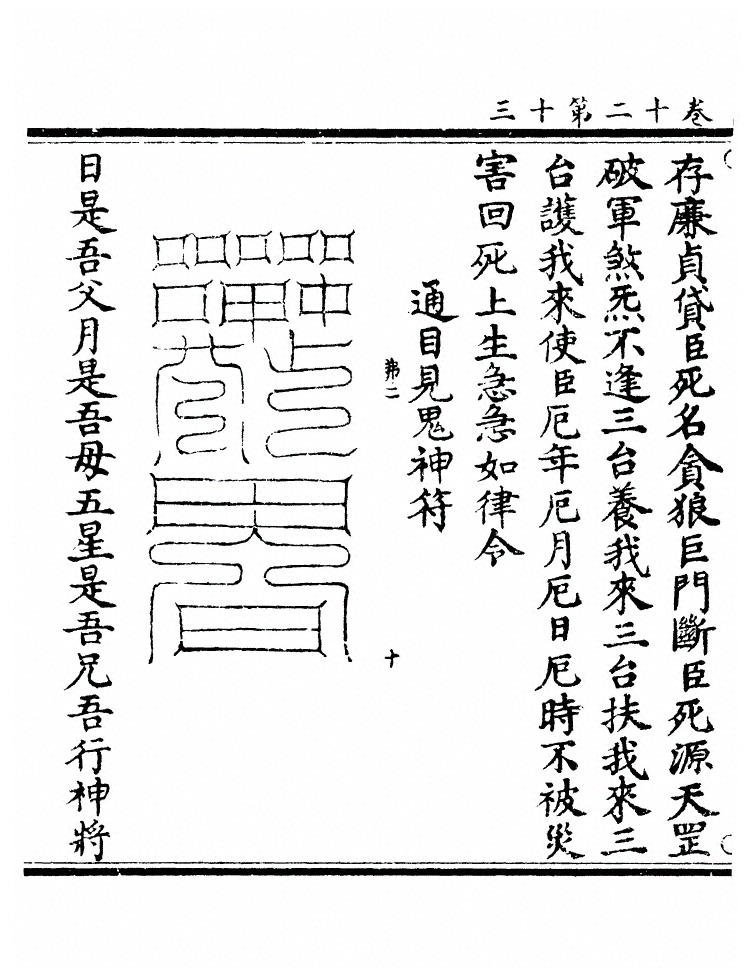 卷十二第十三
存廉貞貸臣死名貪狼巨門斷臣死源天罡
破軍煞炁不逢三台養我來三台扶我來三
台護我來使臣厄年厄月厄日厄時不被災
害回死上生急急如律令
通目見鬼神符
弗二
十
日是吾父月是吾母五星是吾兄吾行神將